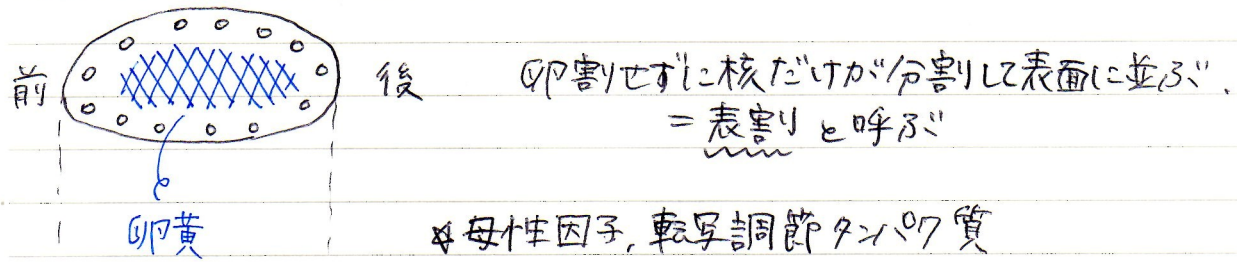 前
後
卵割せずに核だけが分割して表面に並ぶ.
= 表割 と呼ぶ
卵黄
* 母性因子, 転写調節タンパク質